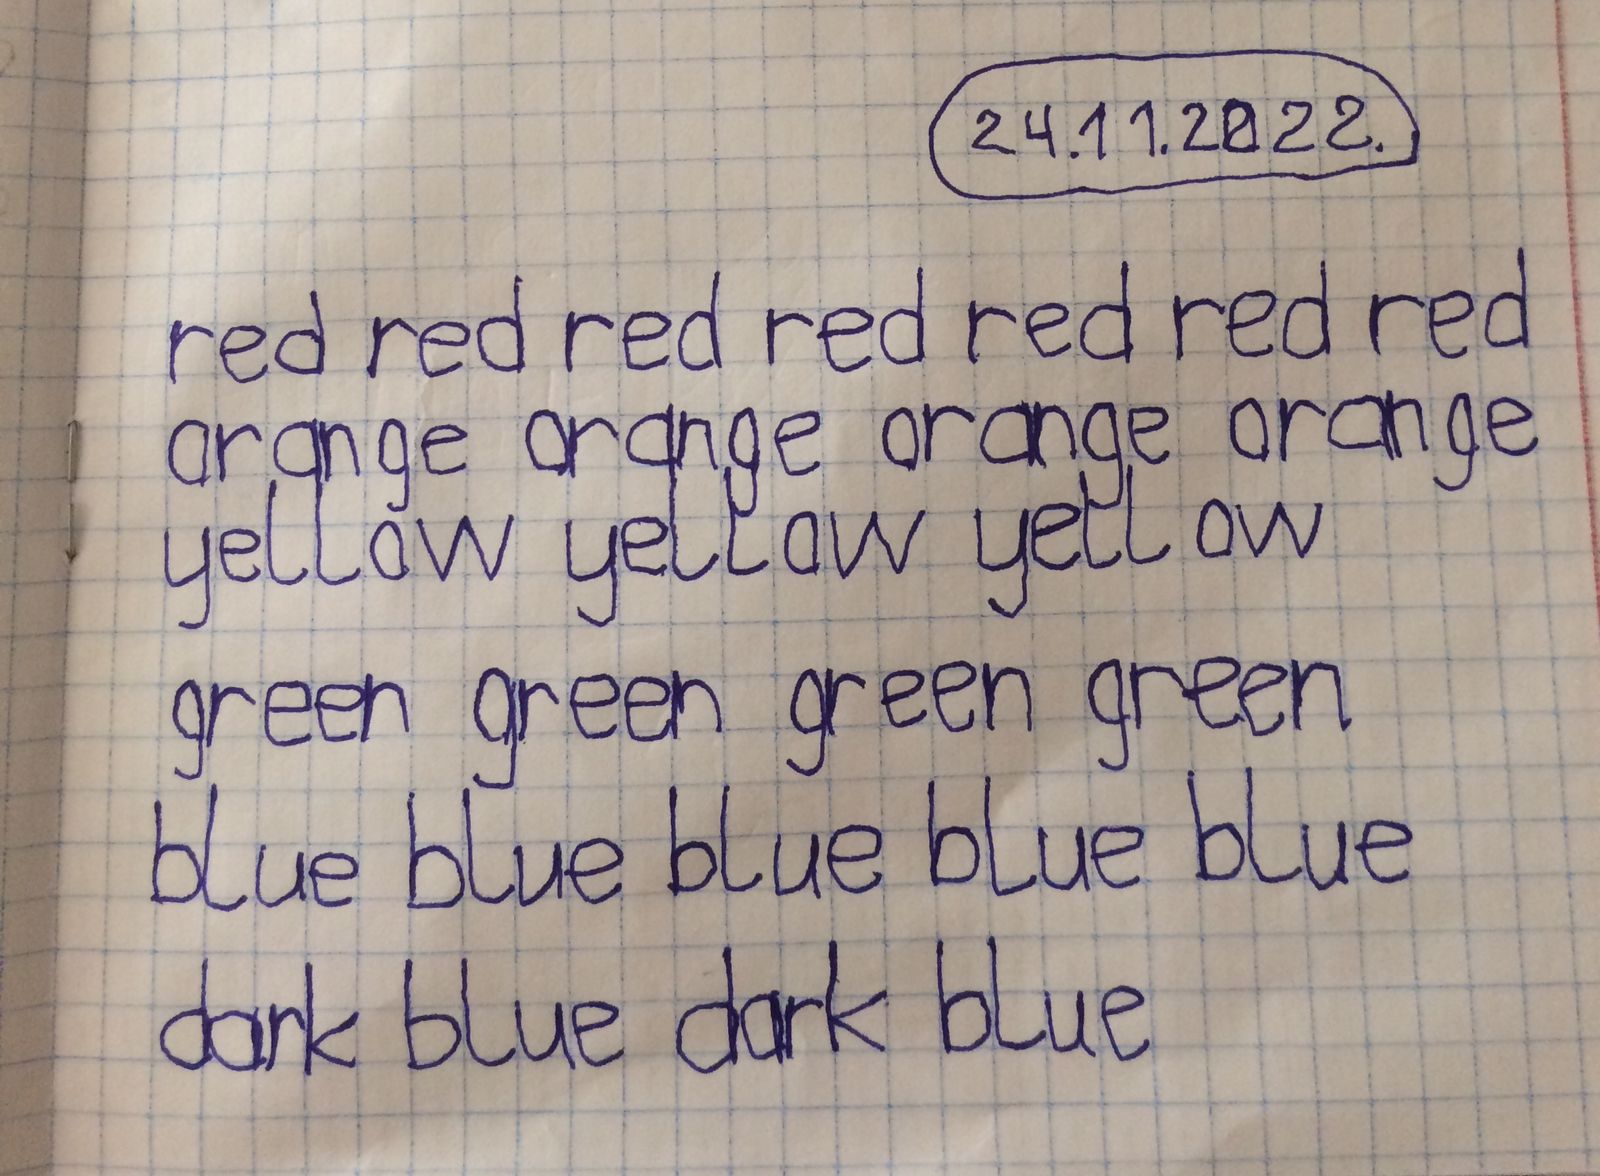 24.11.2022.
red red red red red red red
orange orange orange orange
yellow yellow yellow
green green green green
blue blue blue blue blue
dark blue dark blue